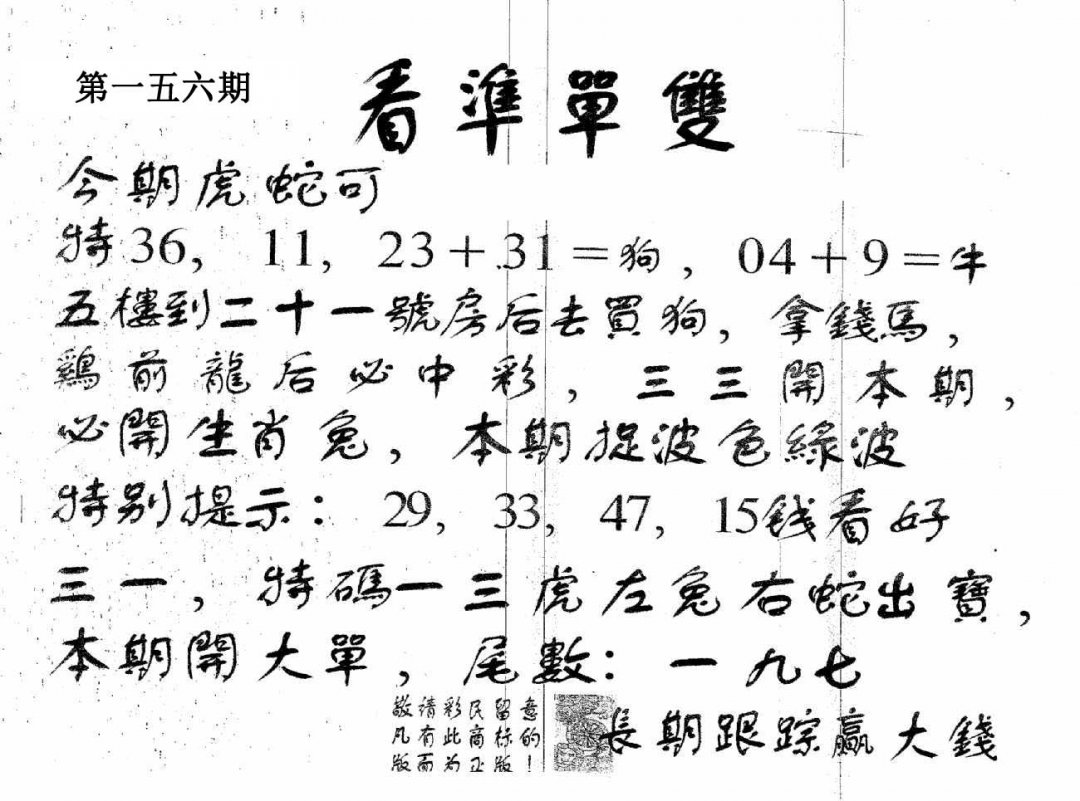 第一五六期
看準單雙
今期虎蛇可
特36, 11, 23+31=狗, 04+9=牛
五樓到二十一號房后去買狗, 拿錢馬,
鷄前龍后必中彩, 三三開本期,
必開生肖兔, 本期捉波色綠波
特别提示: 29, 33, 47, 15錢看好
三一, 特碼一三虎左兔右蛇出寶,
本期開大單, 尾數: 一九七
敬請彩民留意
凡有此商标的!
版面为正版
長期跟踪赢大錢